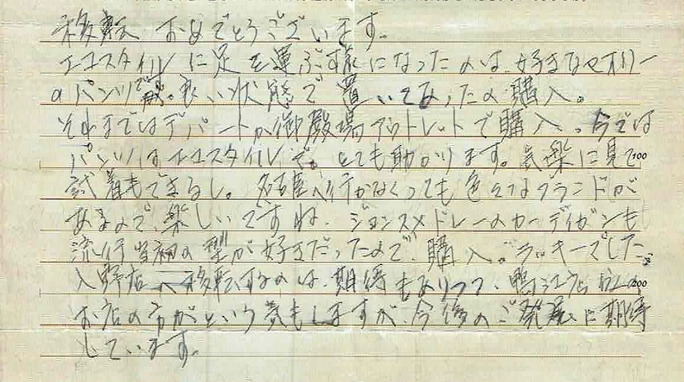 移転 おめでとうございます。
エコスタイルに足を運ぶ様になったのは、好きなセオリー
のパンツが 良い状態で置いてあったの購入。
それまではデパートか御殿場アウトレットで購入。今では
パンツはエコスタイルで。とても助かります。気楽に見て
試着もできるし。名古屋へ行かなくっても色々なブランドが
あるので、楽しいですね。ジョンスメドレーのカーディガンも
流行当初の型が好きだったので、購入。ラッキーでした
入野店へ移転するのは、期待もありつつ、鴨江店
お店の方がという気もしますが、今後のご発展に期待
しています。